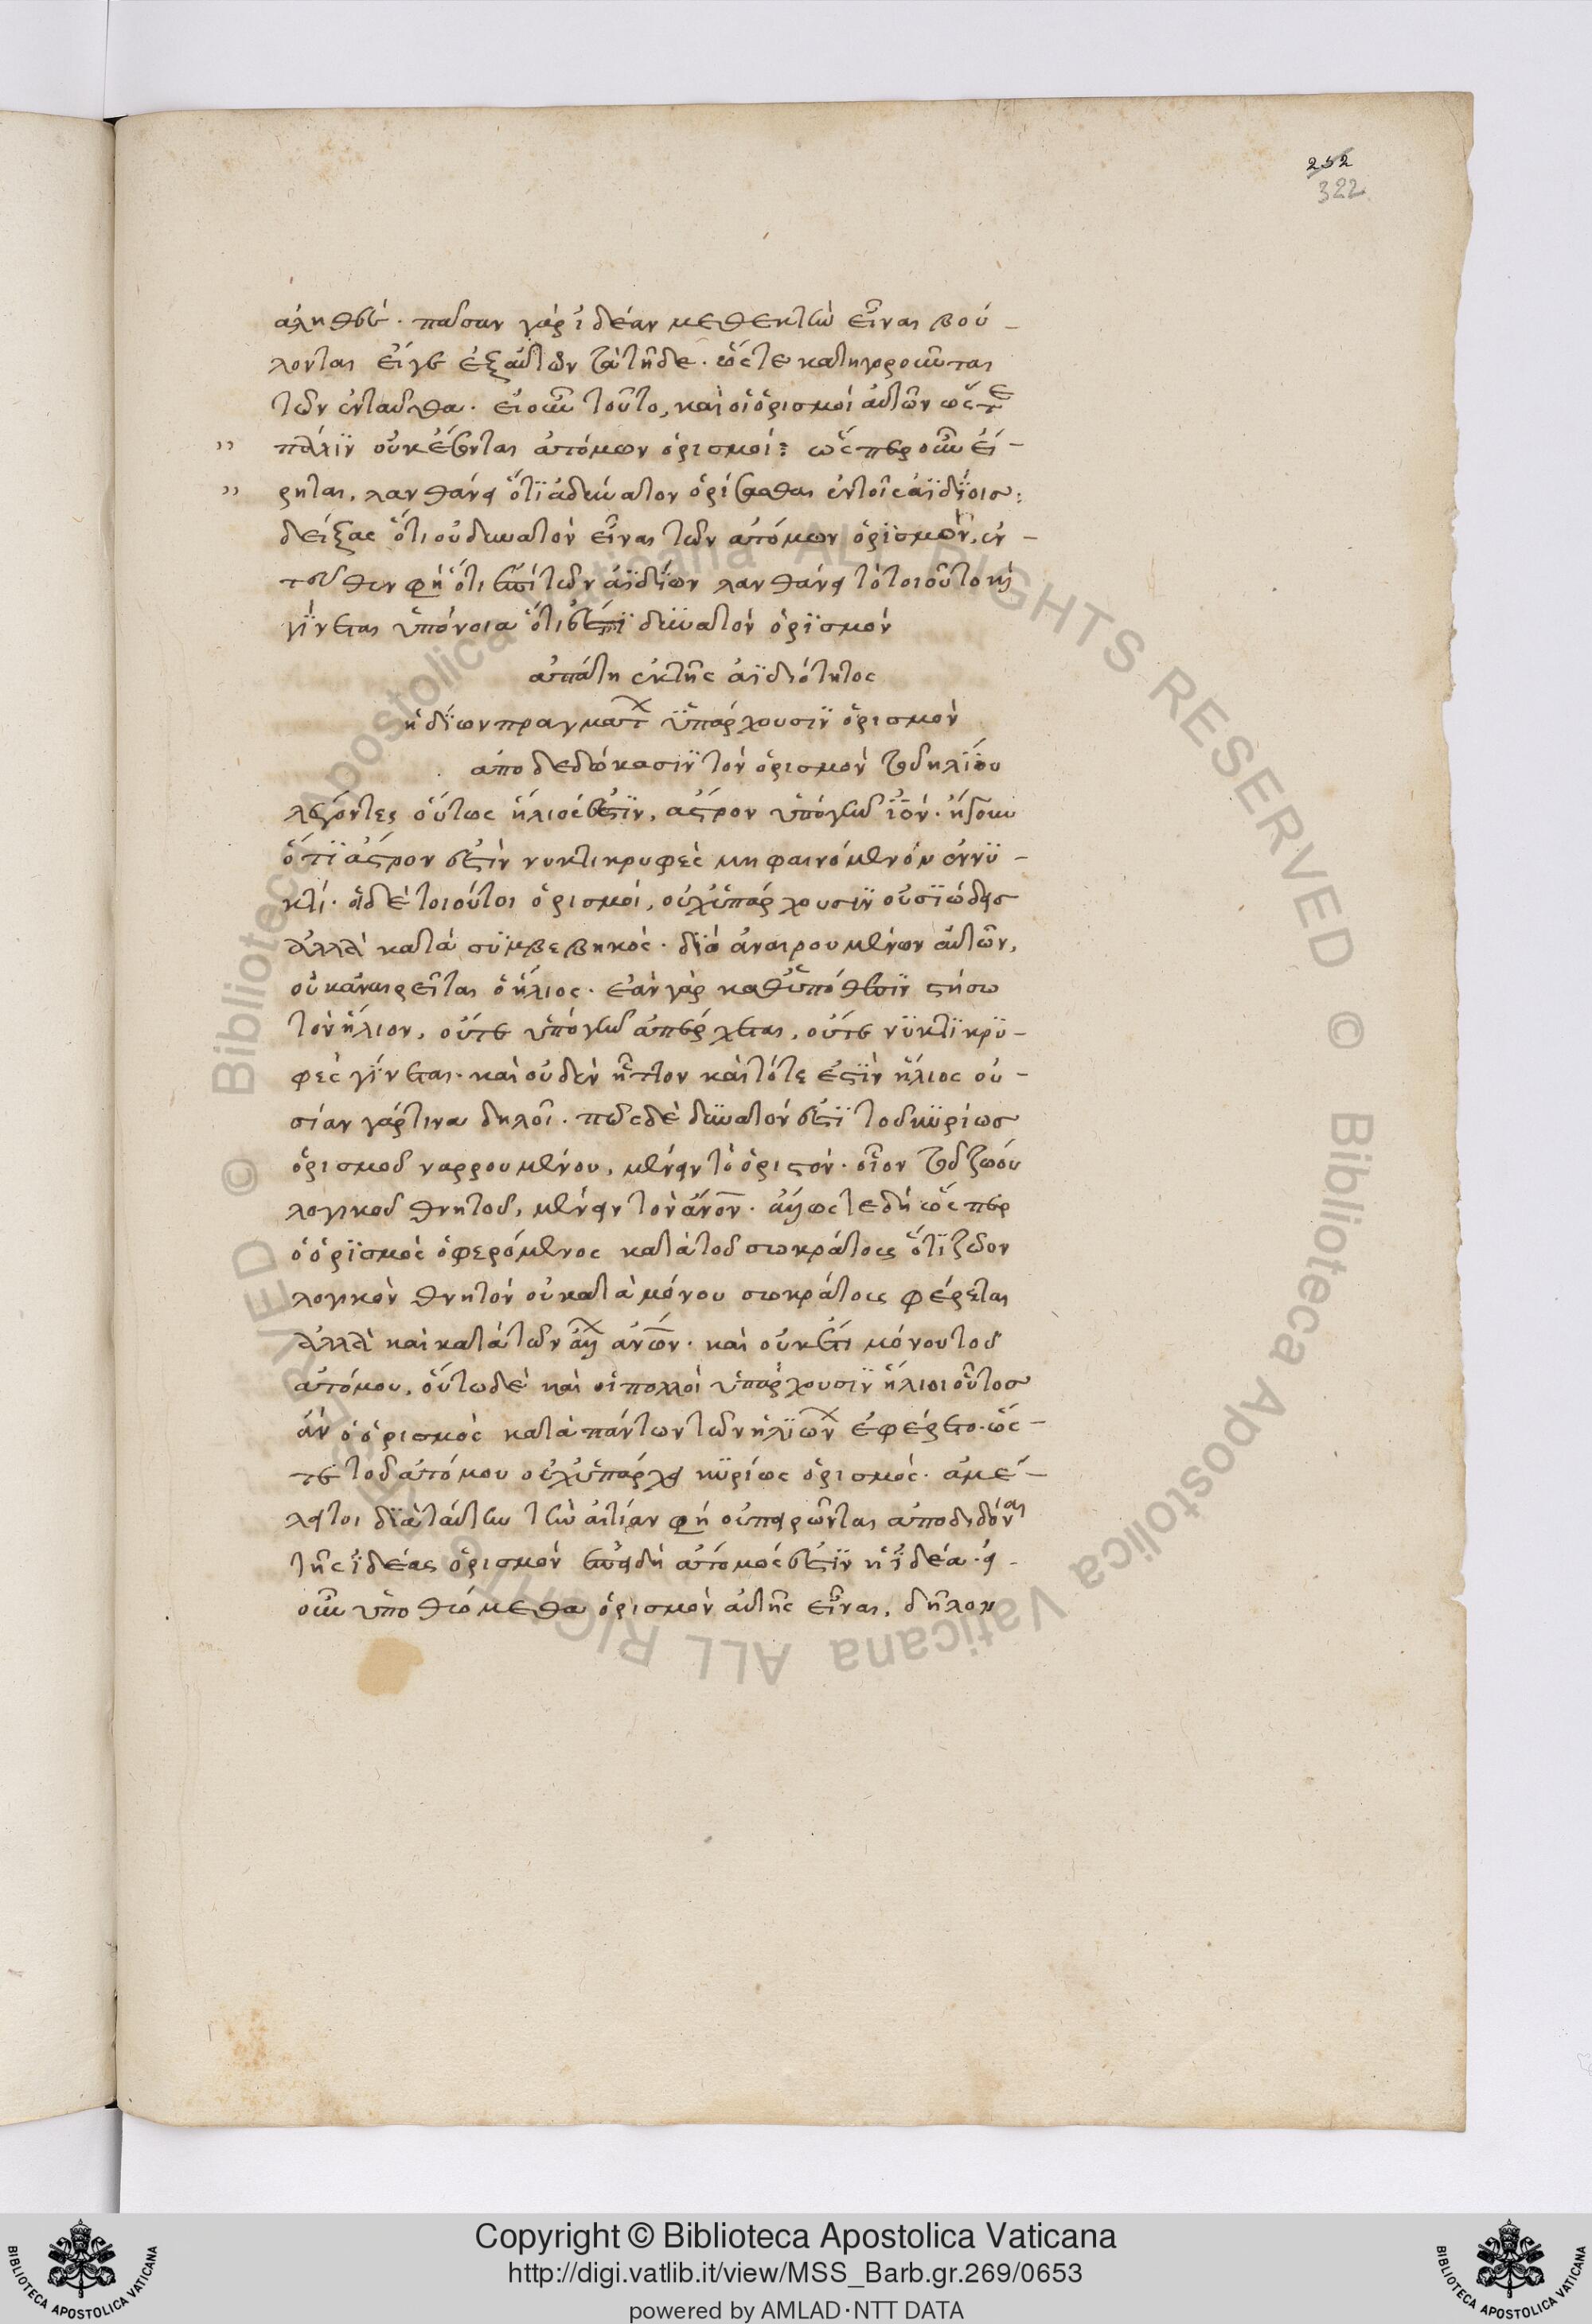 252
322
ἀληθές. πᾶσαν γὰρ ἰδέαν μεθεκτὴν εἶναι βού-
λονται εἴγε ἐξ αὐτῶν τὰ τῆδε. ὥστε κατηγοροῦνται
τῶν ἐνταῦθα. εἰ οὖν τοῦτο, καὶ οἱ ὁρισμοὶ αὐτῶν ὥστε
πάλϊν οὐκ ἔσονται ἀτόμων ὁρισμοί: ὥσπερ οὖν εἴ-
ρηται, λανθάνει ὅτϊ ἀδύνατον ὁρίσασθαι ἐν τοῖς ἀϊδΐοις:
δείξας ὅτι οὐ δυνατὸν εἶναι τῶν ἀτόμων ὁρϊσμόν, ἐν-
τεῦθεν φὴ ὅτι ἐπὶ τῶν ἀϊδΐων λανθάνει τὸ τοιοῦτο καὶ
γΐνεται ὑπόνοια ὅτι ἐστὶ δϋνατὸν ὁρϊσμὸν
ἀπάτη ἐκ τῆς ἀϊδιότητος
ηδΐων πραγματ ὑπάρχουσϊν ὁρισμὸν
ἀποδεδώκασϊν τὸν ὁρισμὸν τοῦ ηλΐου
λέγοντες οὕτως ἥλιός ἐστϊν, ἄστρον ὑπὸ γῆν ἰόν. ἤγουν
ὅτϊ ἄστρον ἐστὶν νυκτικρυφὲς μὴ φαινόμενον ἐν νϋ-
κτί. οἱ δὲ τοιοῦτοι ὁρισμοὶ, οὐχ ὑπάρχουσϊν οὐσϊώδεις
ἀλλὰ κατὰ συμβεβηκός. δϊὸ ἀναιρουμένων αὐτῶν,
οὐκ ἀναιρεῖται ὁ ἥλιος. ἐὰν γὰρ καθ ὑπόθεσϊν στήσω
τὸν ἥλιον, οὔτε ὑπὸ γῆν ἀπέρχεται, οὔτε νϋκτϊκρϋ-
φὲς γΐνεται. καὶ οὐδὲν ἧττον καὶ τότε ἐστϊν ἥλιος οὐ-
σίαν γάρ τινα δηλοῖ. πῶς δὲ δϋνατόν ἐστϊ τοῦ κϋρίως
ὁρισμοῦ ναρρουμένου, μένειν τὸ ὁριστόν. οἷον τοῦ ζώου
λογικοῦ θνητοῦ, μένειν τὸν ἄνον. ἄλλως τε δὴ ὥσπερ
ὁ ὁρϊσμὸς ὁ φερόμενος κατὰ τοῦ σωκράτους ὅτϊ ζῶον
λογικὸν θνητὸν οὐ κατὰ μόνου σωκράτους φέρεται
ἀλλὰ καὶ κατὰ τῶν ἄλλων ἀνων. καὶ οὐκ ἔστι μόνου τοῦ
ἀτόμου, οὕτω δὲ καὶ οἱ πολλοὶ ὑπάρχουσϊν ἥλιοι οὗτος
ἂν ὁ ὁρισμὸς κατὰ πάντων τῶν ἡλϊων ἐφέρετο. ὥσ-
τε τοῦ ἀτόμου οὐχ ὑπάρχει κϋρίως ὁρισμός. ἀμέ-
λει τοι δϊὰ ταύτην τὴν αἰτίαν φὴ οὐ πειρῶνται ἀποδιδόναι
τῆς ἰδέας ὁρισμὸν ἐπειδὴ ἄτομός ἐστϊν ἡ ἰδέα. εἰ
οὖν ὑποθώμεθα ὁρισμὸν αὐτῆς εἶναι, δῆλον
Copyright © Biblioteca Apostolica Vaticana
http://digi.vatlib.it/view/MSS_Barb.gr.269/0653
powered by AMLAD·NTT DATA